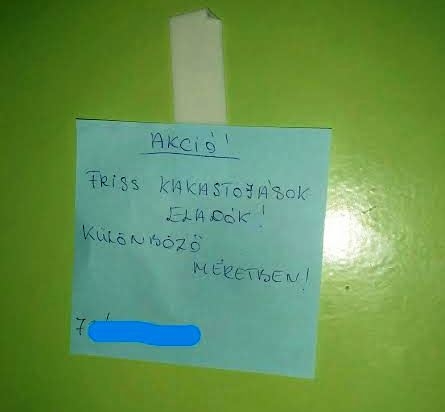 AKCIÓ!
FRISS KAKASTOJÁSOK
ELADÓK!
KÜLÖNBÖZŐ
MÉRETBEN!
7